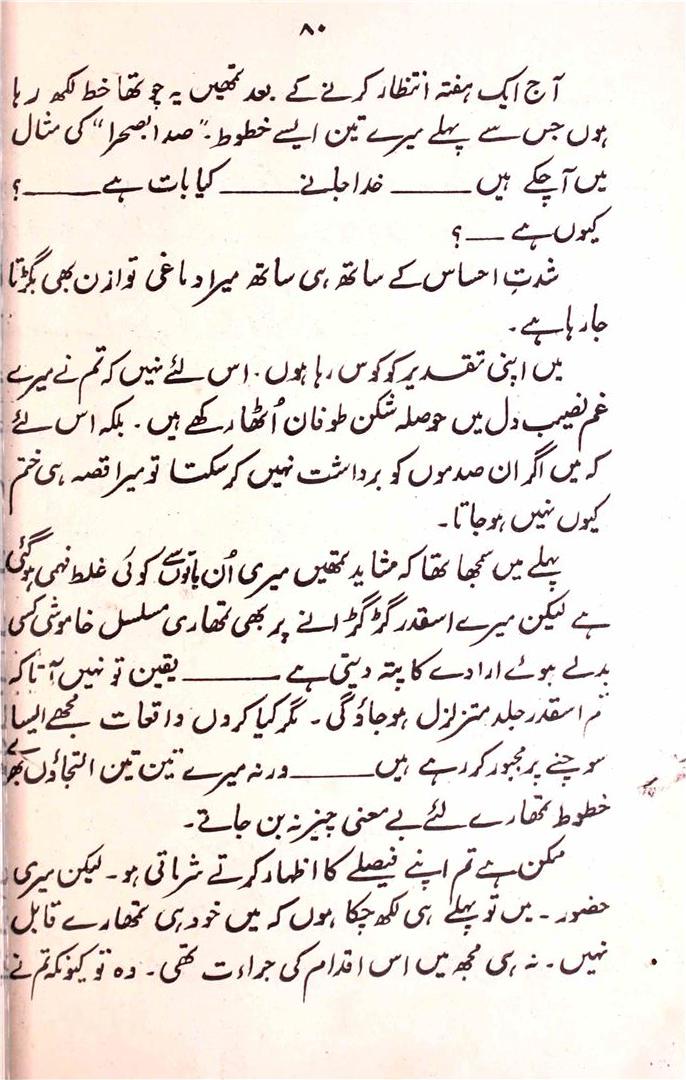 ۸۰
آج ایک ہفتہ انتظار کرنے کے بعد تمھیں یہ چوتھا خط لکھ رہا
ہوں جس سے پہلے میرے تین ایسے خطوط۔ ”صدا بصحرا“ کی مثال
میں آ چکے ہیں ــــــ خدا جانے ــــــ کیا بات ہے ــــــ؟
کیوں ہے ــــ؟
شدتِ احساس کے ساتھ ہی ساتھ میرا دماغی توازن بھی بگڑتا
جا رہا ہے۔
میں اپنی تقدیر کو کوس رہا ہوں۔ اس لئے نہیں کہ تم نے میرے
غم نصیب دل میں حوصلہ شکن طوفان اُٹھا رکھے ہیں۔ بلکہ اس لئے
کہ میں اگر ان صدموں کو برداشت نہیں کر سکتا تو میرا قصہ ہی ختم
کیوں نہیں ہو جاتا۔
پہلے میں سمجھا تھا کہ شاید تمھیں میری اُن باتوں سے کوئی غلط فہمی ہو گئی
ہے لیکن میرے اسقدر گڑگڑانے پر بھی تمھاری مسلسل خاموشی کسی
بدلے ہوئے ارادے کا پتہ دیتی ہے ــــــ یقین تو نہیں آتا کہ
تم اسقدر جلد متزلزل ہو جاؤ گی۔ مگر کیا کروں واقعات مجھے ایسا
سوچنے پر مجبور کر رہے ہیں ــــــ ورنہ میرے تین تین التجاؤں بھرے
خطوط تمھارے لئے بے معنی چیز نہ بن جاتے۔
ممکن ہے تم اپنے فیصلے کا اظہار کرتے شرماتی ہو۔ لیکن میری
حضور۔ میں تو پہلے ہی لکھ چکا ہوں کہ میں خود ہی تمھارے قابل
نہیں۔ نہ ہی مجھ میں اس اقدام کی جراءت تھی۔ وہ تو کیونکہ تم نے